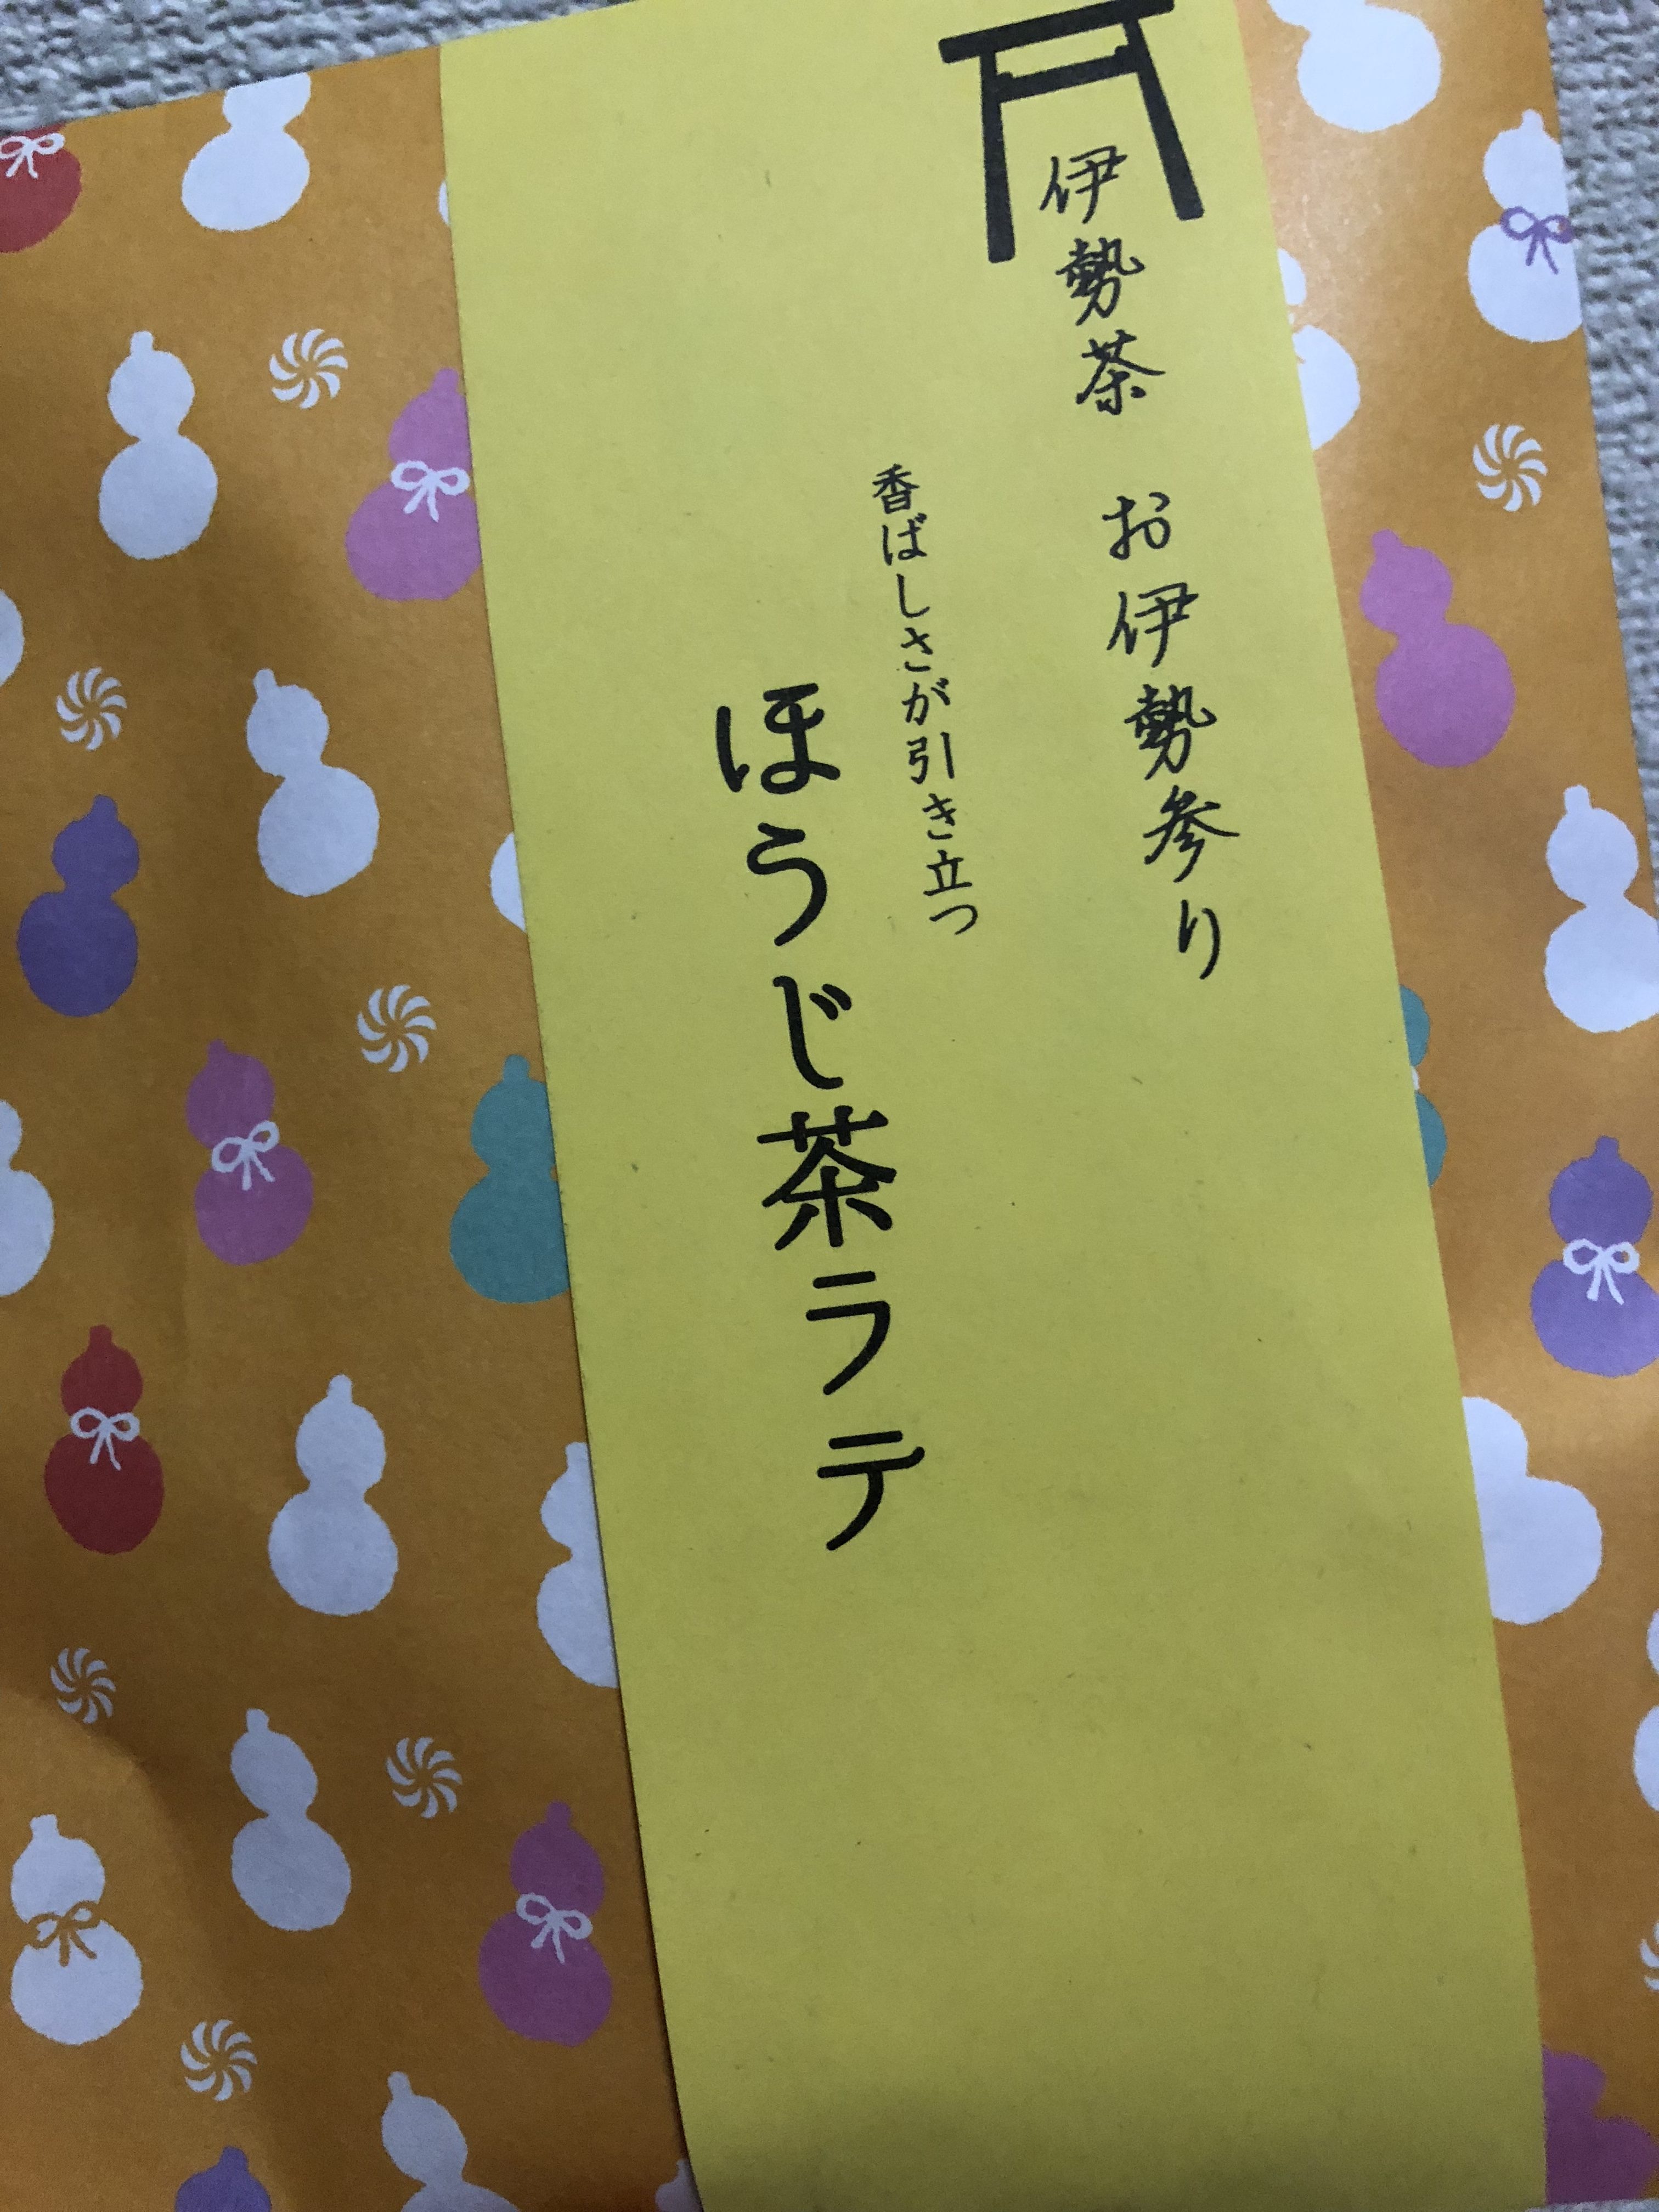 伊勢茶 お伊勢参り
香ばしさが引き立つ
ほうじ茶ラテ